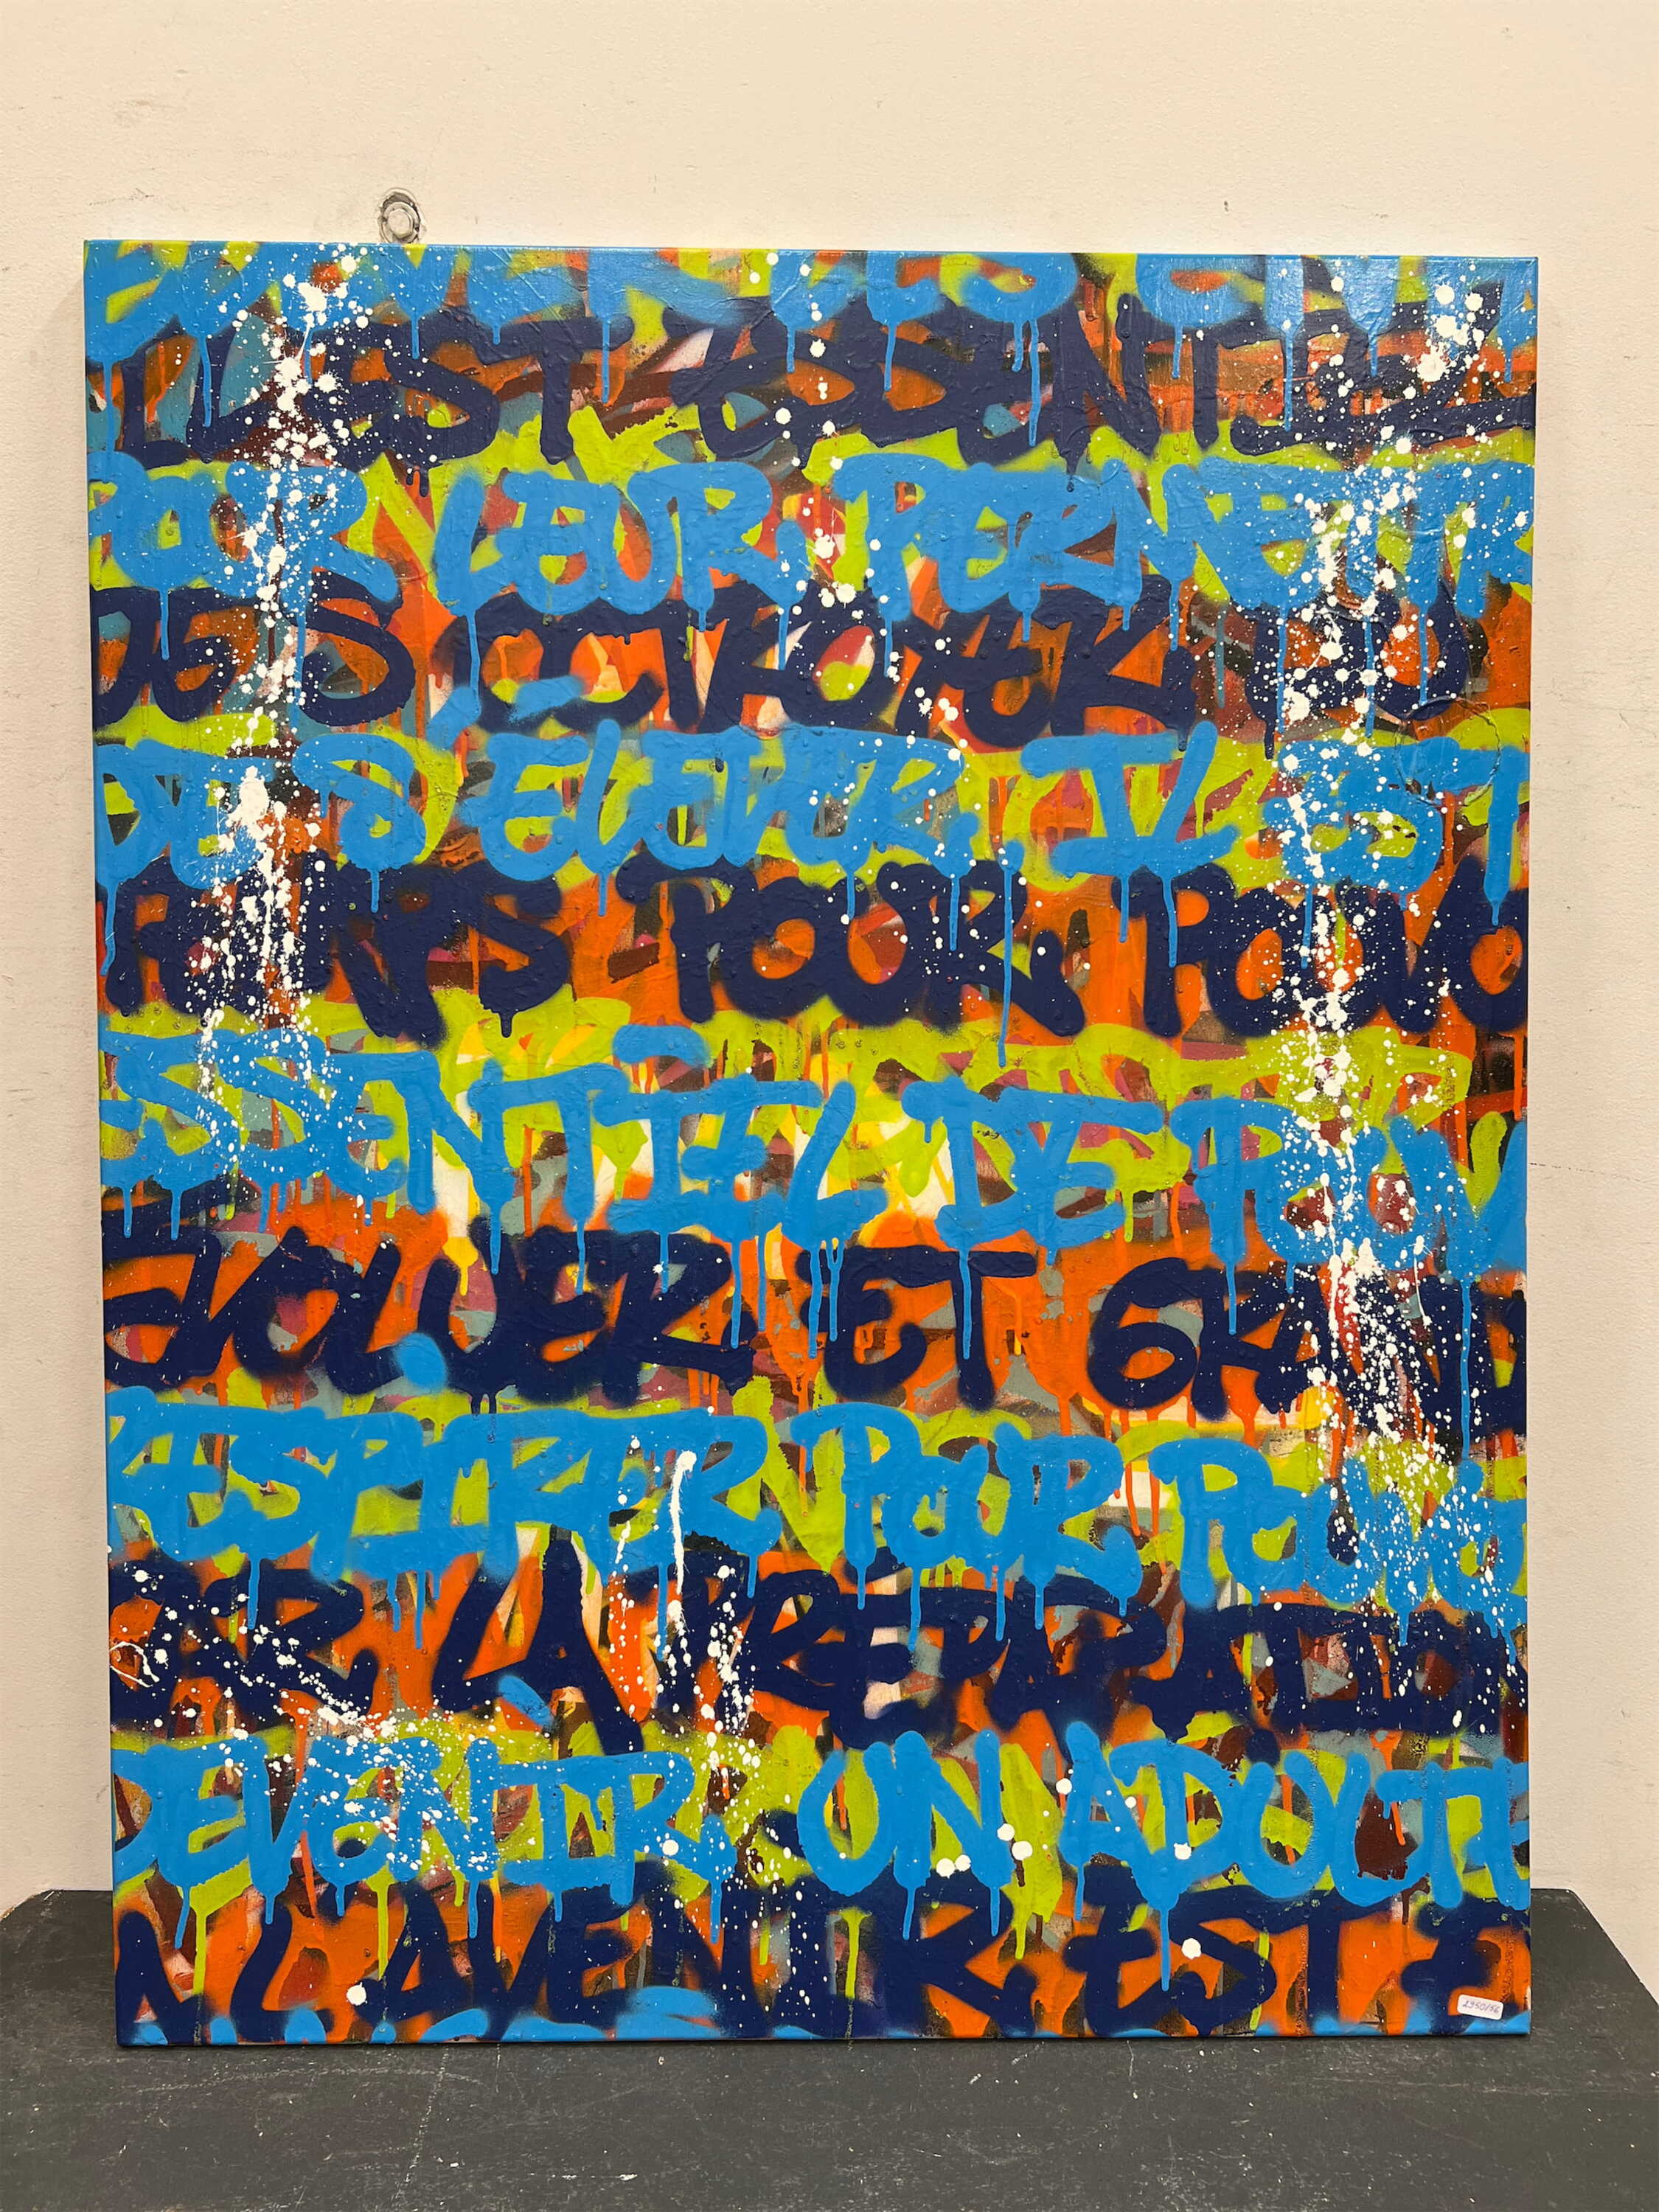 IL EST ESSENTIEL
POUR LEUR PERMETTR
DE S
DE S ELEVER. IL EST
POUR POUVO
ESSENTIEL DE POUV
JOUER ET GRAND
RESPIRER POUR POUVO
CAR LA PREPARATION
DEVENIR UN ADULTE
N L'AVENIR EST E
2950/56